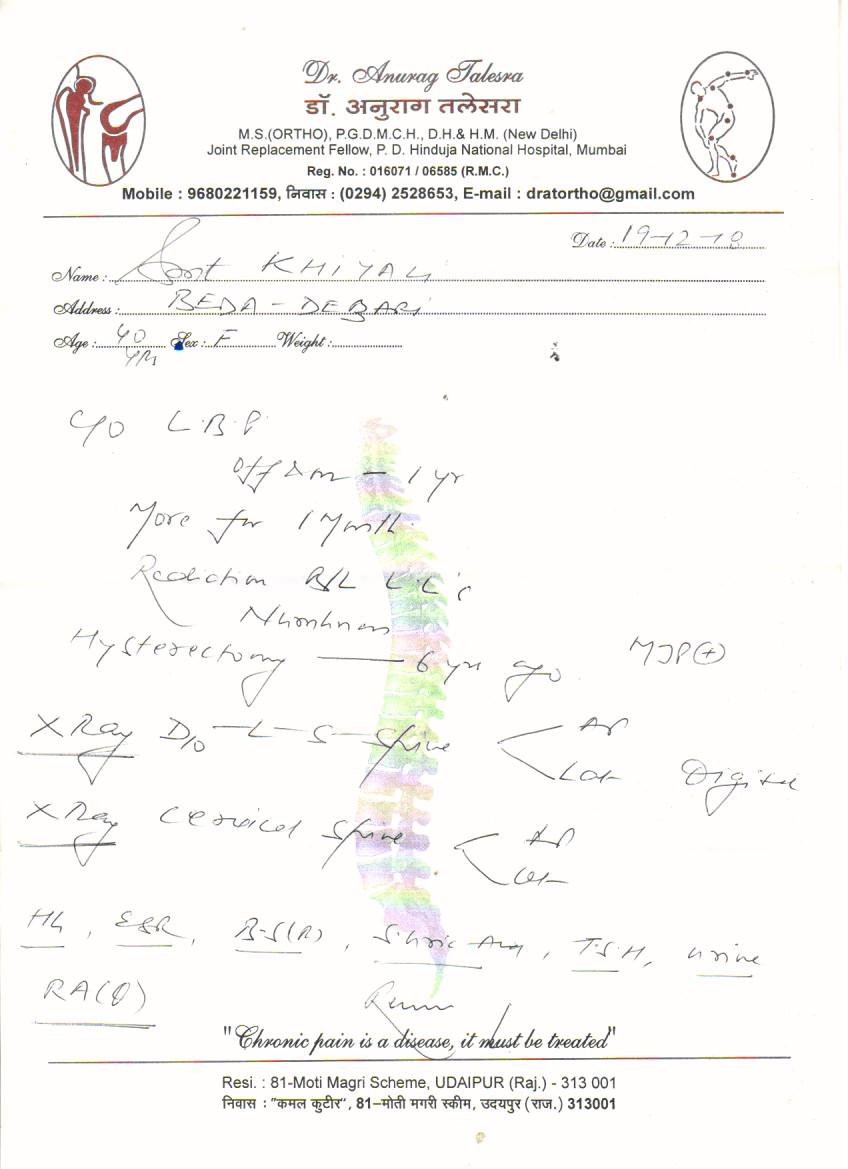 Dr. Anurag Talesra
डॉ. अनुराग तलेसरा
M.S.(ORTHO), P.G.D.M.C.H., D.H.& H.M. (New Delhi)
Joint Replacement Fellow, P. D. Hinduja National Hospital, Mumbai
Reg. No. : 016071 / 06585 (R.M.C.)
Mobile : 9680221159, निवास : (0294) 2528653, E-mail : dratortho@gmail.com
Date : 19-12-18
Name : Smt KHIYALI
Address : BEDA - DEBARI
Age : 40 Sex : F Weight :
yrs
C/O L.B.P.
Off & on - 1 yr
More for 1 Month
Radiation B/L L.L's
Numbness
Hysterectomy — 6 yr ago MJP(+)
X Ray D/o - L - S - Spine AP
Lat Digital
X Ray Cervical Spine AP
Lat
Hb, ESR, B-S(R), S. Uric Acid, T.S.H, Urine
RA(Q)
"Chronic pain is a disease, it must be treated"
Resi. : 81-Moti Magri Scheme, UDAIPUR (Raj.) - 313 001
निवास : "कमल कुटीर", 81–मोती मगरी स्कीम, उदयपुर (राज.) 313001